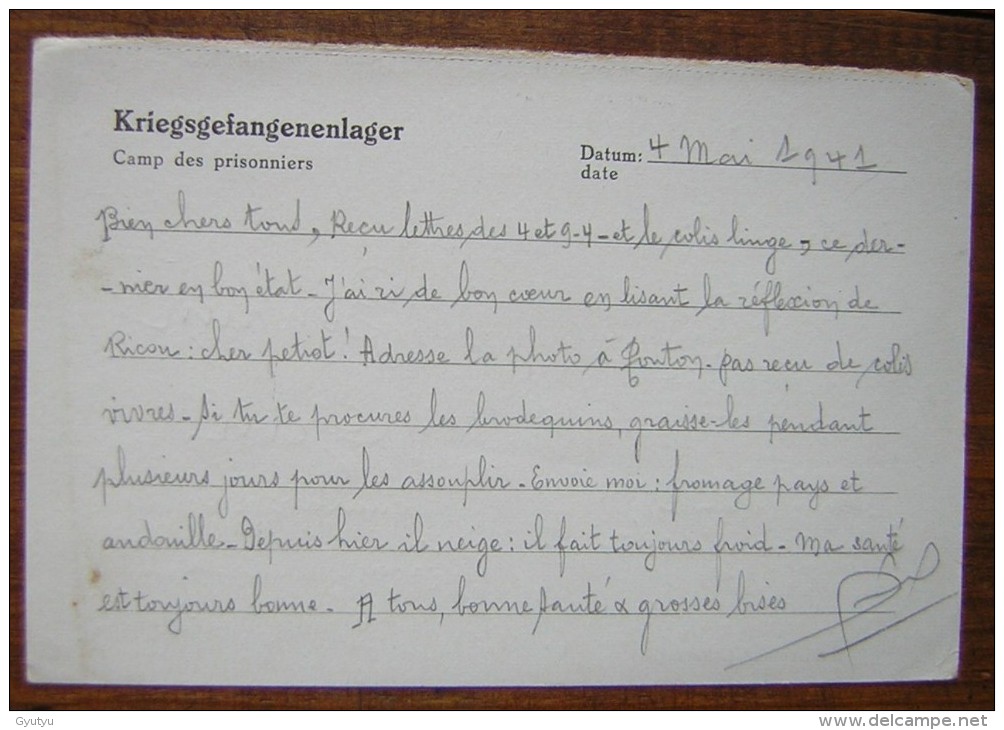 Kriegsgefangenenlager
Camp des prisonniers
Datum: 4 Mai 1941
date
Bien chers tous, Reçu lettres des 4 et 9-4 - et le colis linge, ce der-
-nier en bon état - J'ai ri de bon cœur en lisant la réflexion de
Ricou : cher petiot ! Adresse la photo à Fonton - pas reçu de colis
vivres - Si tu te procures les brodequins, graisse-les pendant
plusieurs jours pour les assouplir - Envoie moi : fromage pays et
andouille - Depuis hier il neige : il fait toujours froid - Ma santé
est toujours bonne - A tous, bonne santé & grosses bises
Gyutyu
www.delcampe.net